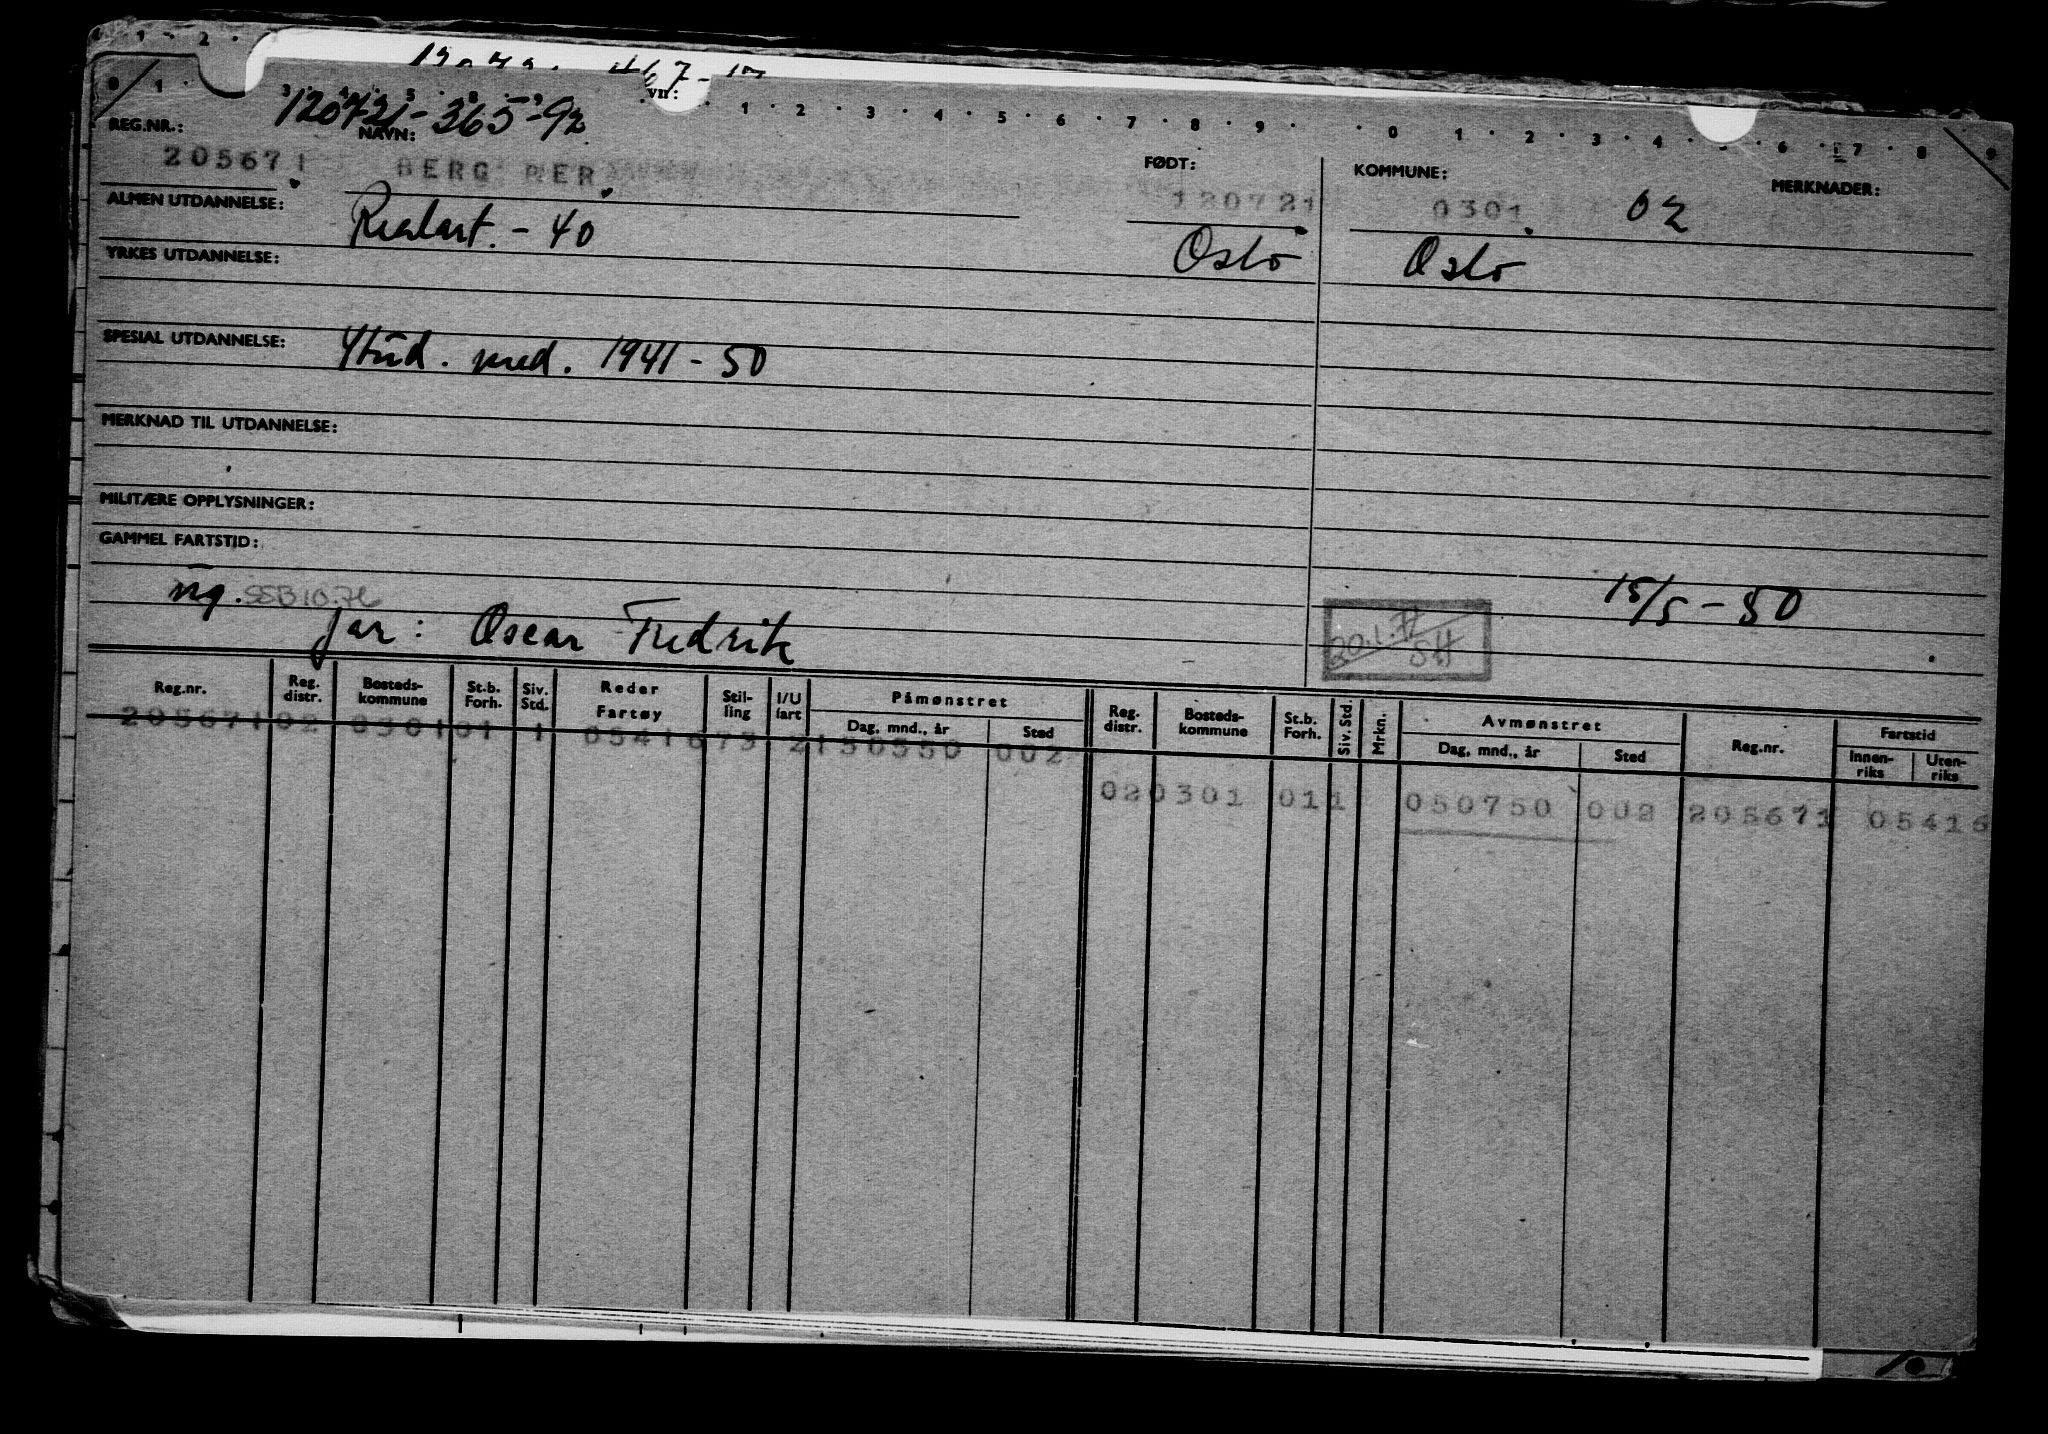 120721-365-92
REG.NR.: NAVN: FØDT: KOMMUNE: MERKNADER:
205671 BERG PER 120721 0301 02
ALMEN UTDANNELSE: Realart. - 40 Oslo Oslo
YRKES UTDANNELSE:
SPESIAL UTDANNELSE: Stud. med. 1941 - 50
MERKNAD TIL UTDANNELSE:
MILITÆRE OPPLYSNINGER:
GAMMEL FARTSTID:
ug. SSB 10.76 15/5 - 50
far: Oscar Fredrik 20.1.77 SH
Reg.nr. Reg. distr. Bosteds-kommune St.b. Forh. Siv. Std. Reder Fartøy Stil-ling I/U fart Påmønstret Dag, mnd., år Sted Reg. distr. Bosteds-kommune St.b. Forh. Siv. Std. Mrkn. Avmønstret Dag, mnd., år Sted Reg.nr. Fartstid Innen-riks Uten-riks
205671 02 0301 01 1 05416 73 2 150550 002
02 0301 01 1 050750 002 205671 05416